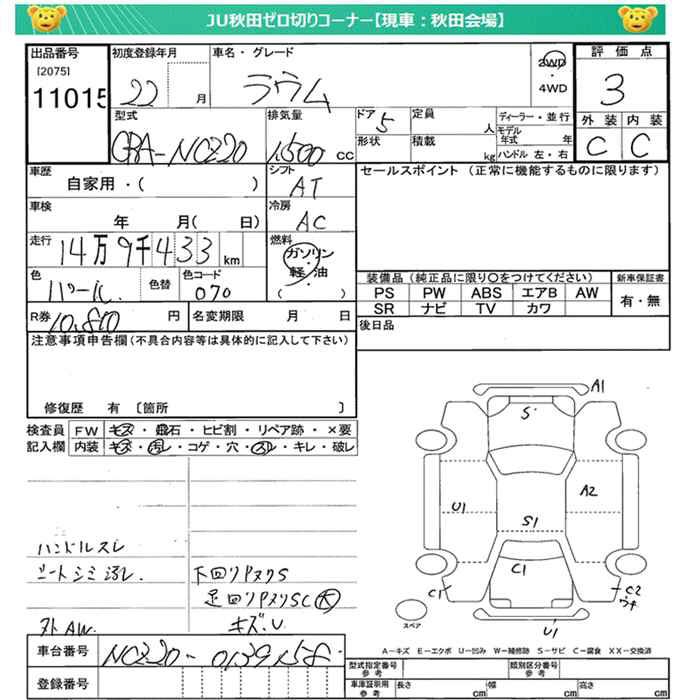 JU秋田ゼロ切りコーナー【現車：秋田会場】
出品番号 初度登録年月 車名・グレード 2WD 評価点
[2075] 4WD
11015 22 月 ラウム 3
型式 排気量 ドア 定員 ディーラー・並行 外装 内装
CBA-NCZ20 1,500 CC 5 人 モデル年式 年 C C
形状 積載 kg ハンドル 左・右
車歴 シフト セールスポイント (正常に機能するものに限ります)
自家用・( ) AT
車検 冷房
年 月( 日) AC
走行 燃料
14万9千433 km ガソリン・軽油 ( )
色 色替 色コード 装備品 (純正品に限り〇をつけてください) 新車保証書
パール 070 PS PW ABS エアB AW 有・無
SR ナビ TV カワ
R券 10,800 円 名変期限 月 日 後日品
注意事項申告欄(不具合内容等は具体的に記入して下さい)
修復歴 有 〔箇所 〕
検査員 FW キズ・飛石・ヒビ割・リペア跡・×要
記入欄 内装 キズ・汚レ・コゲ・穴・スレ・キレ・破レ
A1
S
A2
U1
S1
C1
C1
C2
U1
スペア
ハンドルスレ
シートシミ汚レ
下回りPヌリS
足回りPヌリSC 大
外AW. キズ.U
A-キズ E-エクボ U-凹み W-補修跡 S-サビ C-腐食 XX-交換済
車台番号 NCZ20-0139158
登録番号
型式指定番号 参考 類別区分番号 参考
車庫証明用 参考 長さ cm 幅 cm 高さ cm